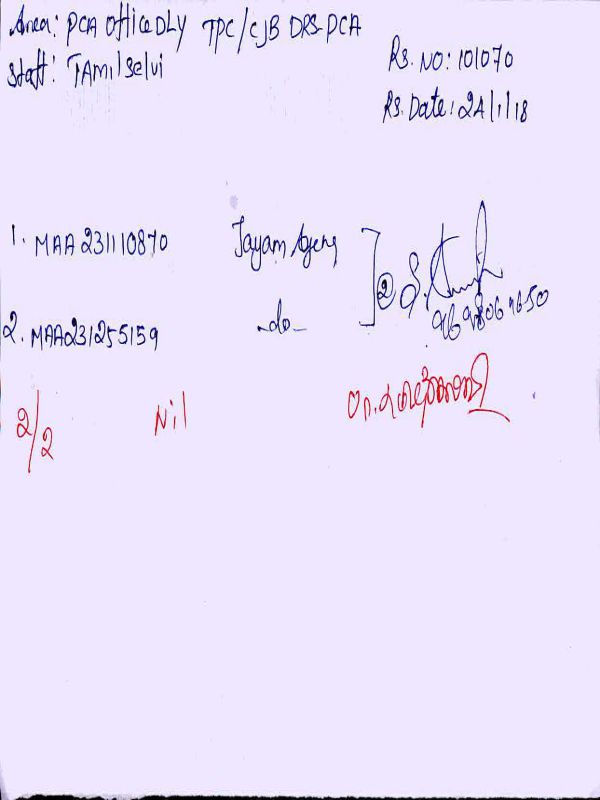 Area: PCA Office DLY TPC/CJB DRS-PCA
Staff: TAmilselvi
RS. NO: 101070
RS. Date: 24/1/18
1. MAA 231110870 Jayam Ageng ] ②
2. MAA231255159 -do-
2/2 Nil